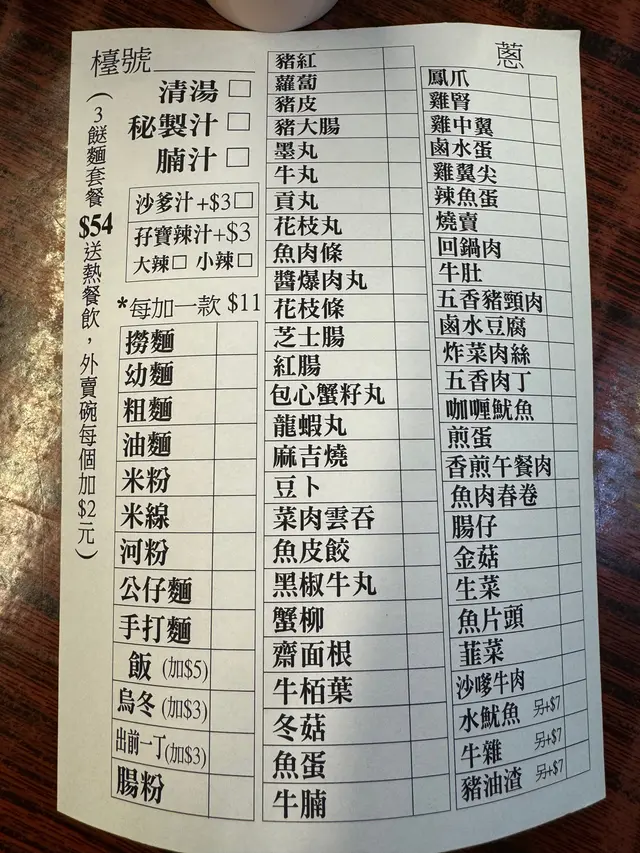 檯號
清湯 □
秘製汁 □
腩汁 □
沙爹汁+$3□
孖寶辣汁+$3
大辣□ 小辣□
(3餸麵套餐 $54 送熱餐飲，外賣碗每個加$2元)
*每加一款 $11
撈麵
幼麵
粗麵
油麵
米粉
米線
河粉
公仔麵
手打麵
飯 (加$5)
烏冬 (加$3)
出前一丁(加$3)
腸粉
豬紅
蘿蔔
豬皮
豬大腸
墨丸
牛丸
貢丸
花枝丸
魚肉條
醬爆肉丸
花枝條
芝士腸
紅腸
包心蟹籽丸
龍蝦丸
麻吉燒
豆卜
菜肉雲吞
魚皮餃
黑椒牛丸
蟹柳
齋面根
牛栢葉
冬菇
魚蛋
牛腩
蔥
鳳爪
雞腎
雞中翼
鹵水蛋
雞翼尖
辣魚蛋
燒賣
回鍋肉
牛肚
五香豬頸肉
鹵水豆腐
炸菜肉絲
五香肉丁
咖喱魷魚
煎蛋
香煎午餐肉
魚肉春卷
腸仔
金菇
生菜
魚片頭
韮菜
沙嗲牛肉
水魷魚 另+$7
牛雜 另+$7
豬油渣 另+$7